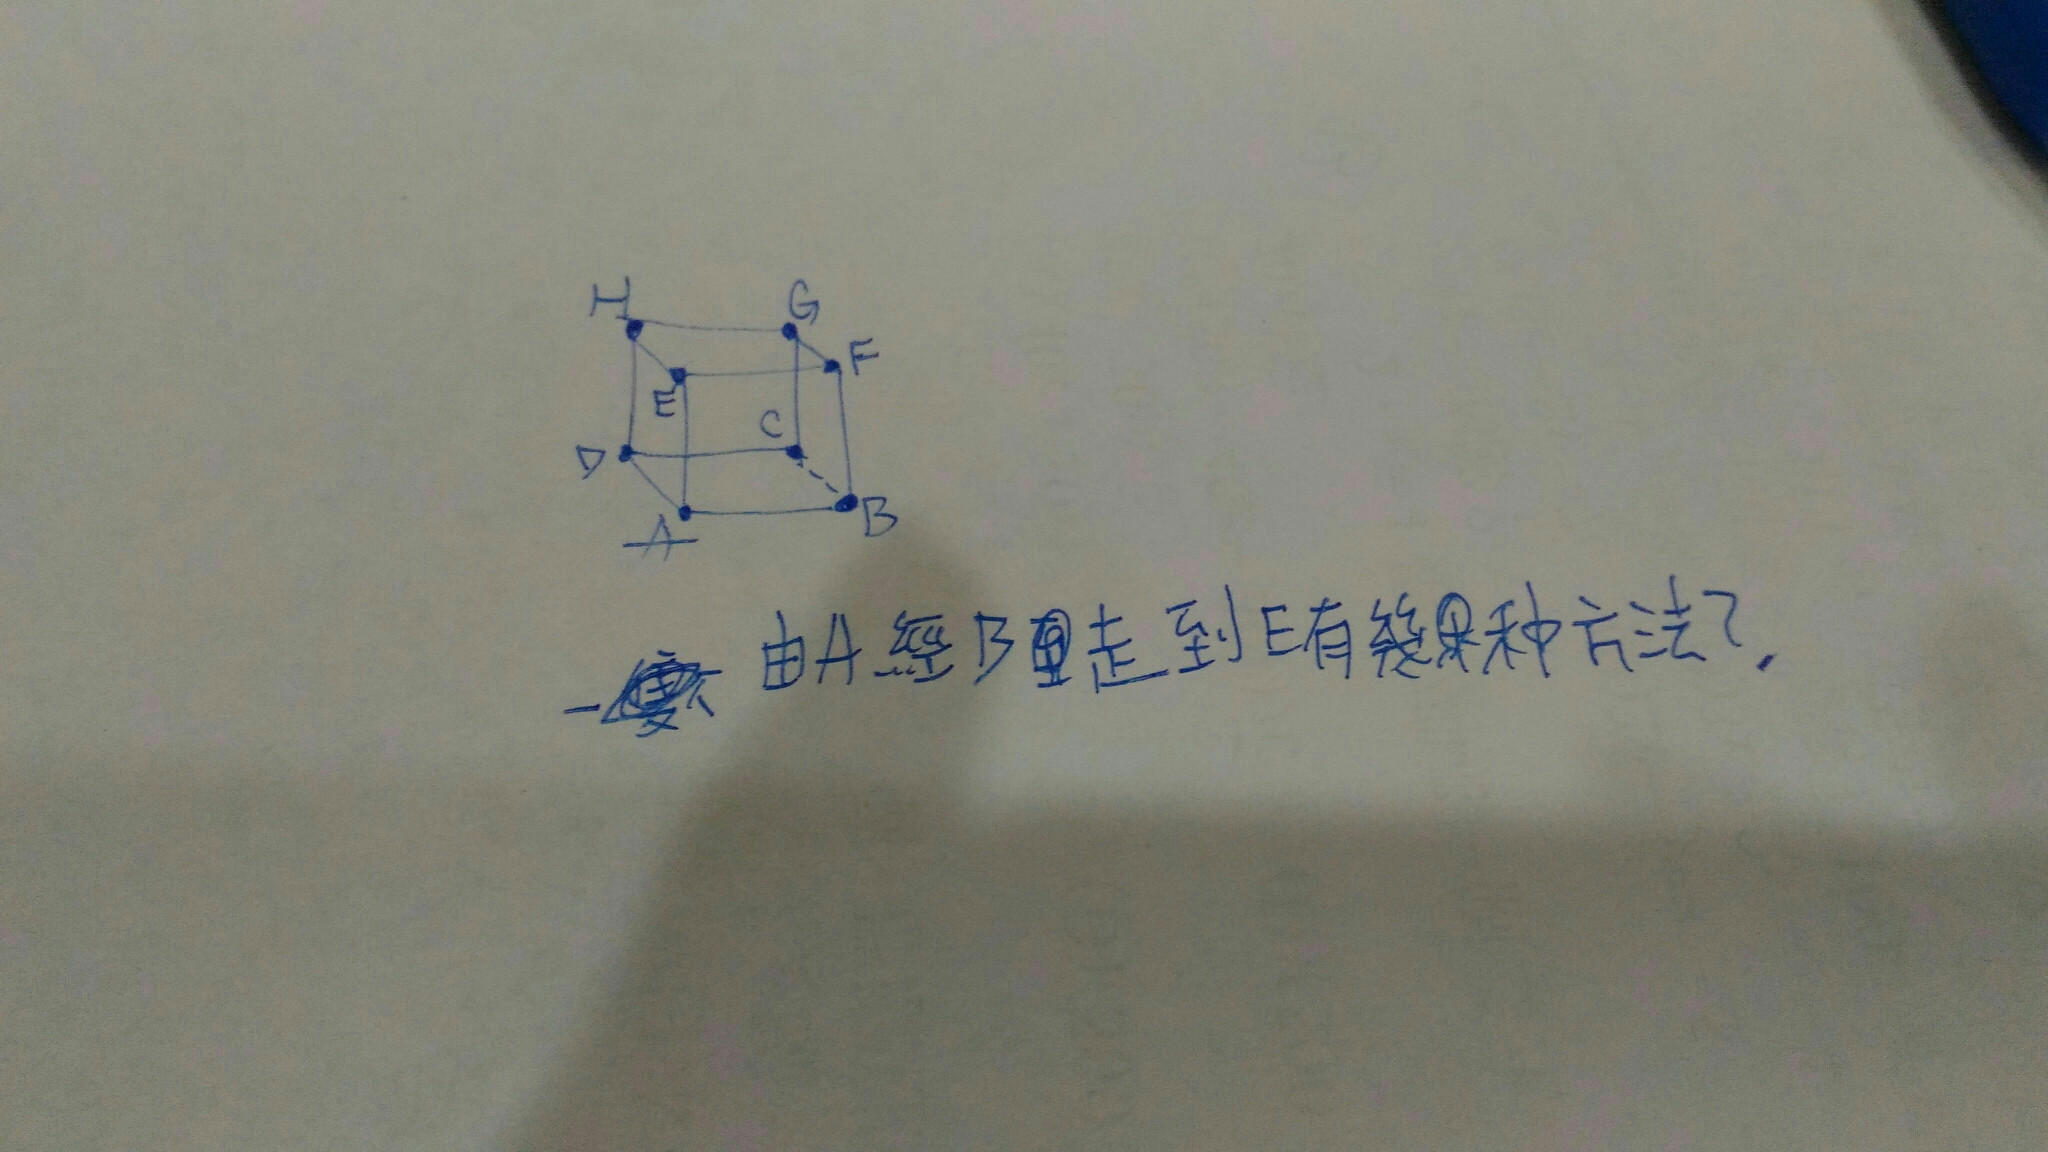 H G
F
E
C
D
A B
由A經B走到E有幾种方法?